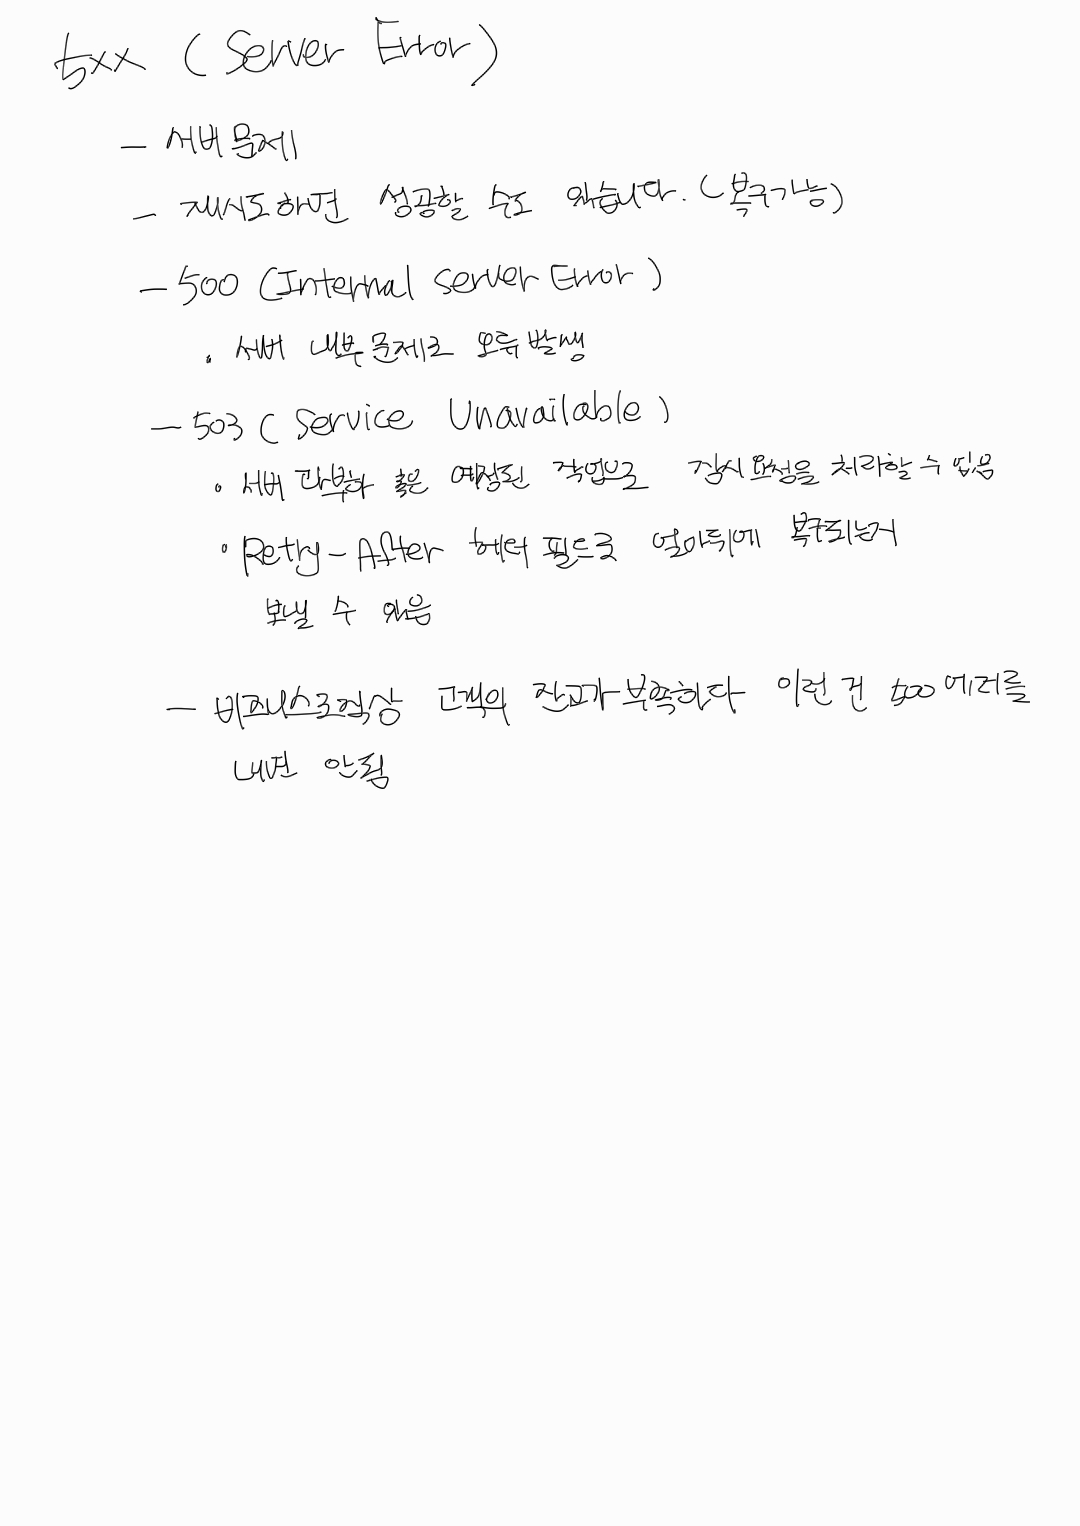 5xx (Server Error)
- 서버 문제
- 재시도하면 성공할 수도 있습니다. (복구가능)
- 500 (Internal Server Error)
• 서버 내부 문제로 오류 발생
- 503 (Service Unavailable)
• 서버 과부하 혹은 예정된 작업으로 잠시 요청을 처리할 수 없음
• Retry-After 헤더 필드로 얼마뒤에 복구되는거
보낼 수 있음
- 비즈니스로직상 고객의 잔고가 부족하다 이런 건 500 에러를
내면 안됨